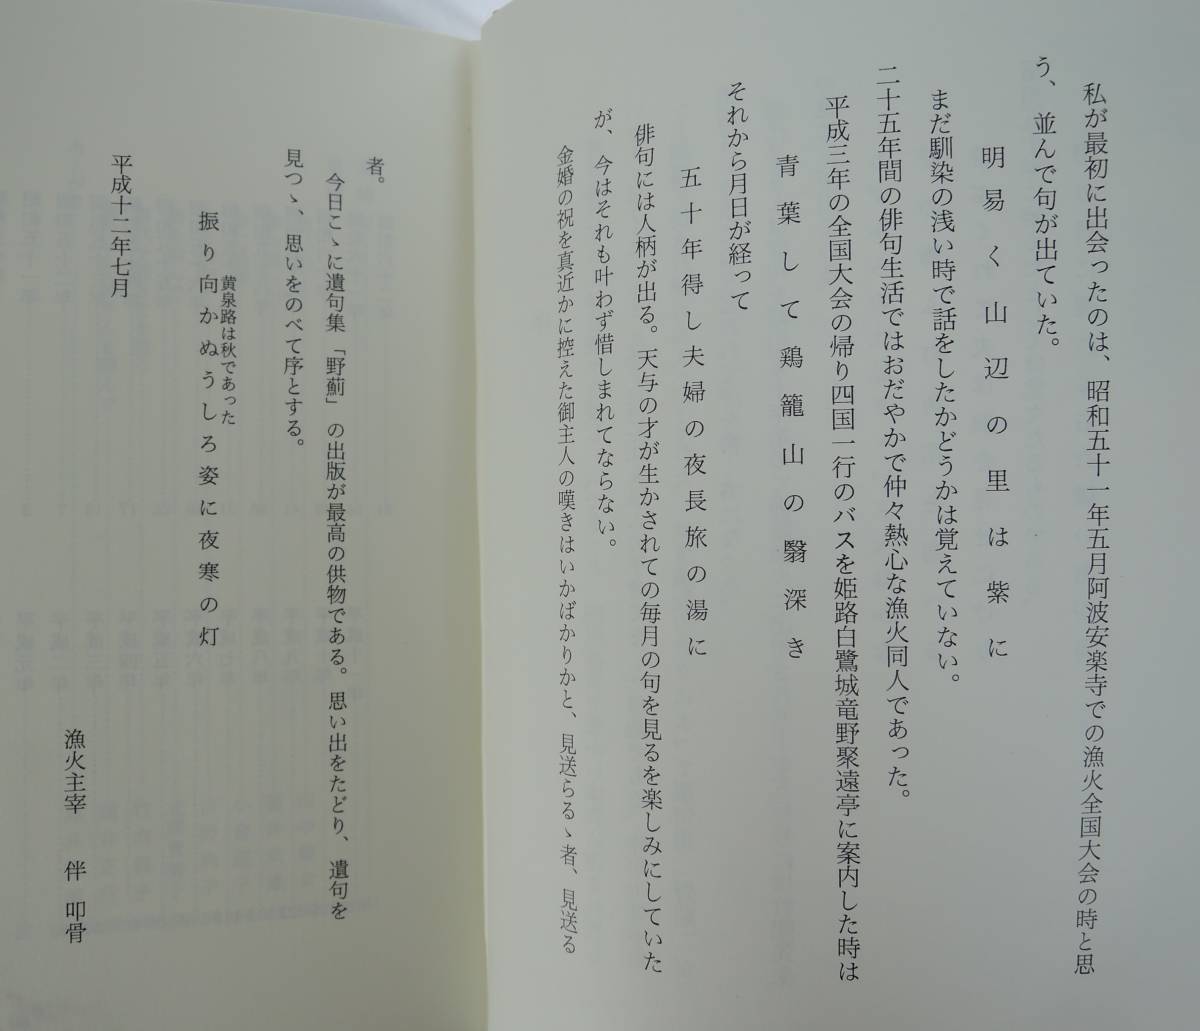 私が最初に出会ったのは、昭和五十一年五月阿波安楽寺での漁火全国大会の時と思
う、並んで句が出ていた。
明易く山辺の里は紫に
まだ馴染の浅い時で話をしたかどうかは覚えていない。
二十五年間の俳句生活ではおだやかで仲々熱心な漁火同人であった。
平成三年の全国大会の帰り四国一行のバスを姫路白鷺城竜野聚遠亭に案内した時は
青葉して鶏籠山の翳深き
それから月日が経って
五十年得し夫婦の夜長旅の湯に
俳句には人柄が出る。天与の才が生かされての毎月の句を見るを楽しみにしていた
が、今はそれも叶わず惜しまれてならない。
金婚の祝を真近かに控えた御主人の嘆きはいかばかりかと、見送らるゝ者、見送る
者。
今日こゝに遺句集「野薊」の出版が最高の供物である。思い出をたどり、遺句を
見つゝ、思いをのべて序とする。
黄泉路は秋であった
振り向かぬうしろ姿に夜寒の灯
平成十二年七月
漁火主宰 伴 叩骨